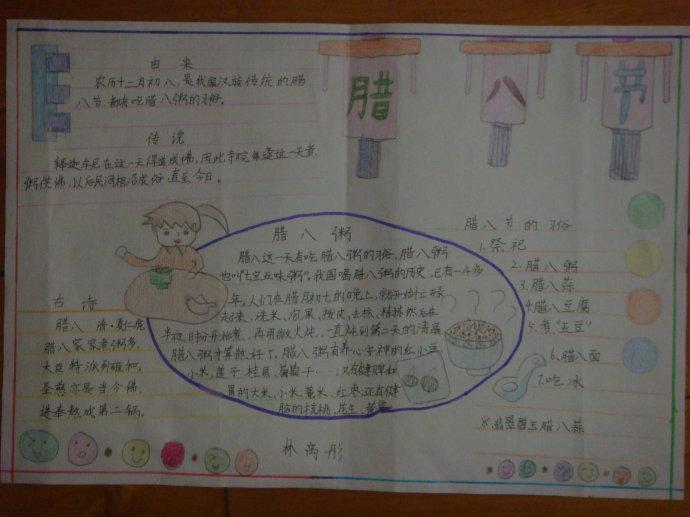 腊八节
由来
农历十二月初八,是我国汉族传统的腊
八节,都有吃腊八粥的习俗。
传说
释迦牟尼在这一天得道成佛,因此寺院每逢这一天煮
粥供佛,以后民间相沿成俗,直至今日。
古诗
腊八 清·夏仁虎
腊八家家煮粥多,
大臣特派到雍和。
圣慈亦是当今佛,
进奉熬成第二锅。
腊八粥
腊八这一天有吃腊八粥的习俗,腊八粥
也叫"七宝五味粥"。我国喝腊八粥的历史,已有一千多
年。人们在腊月初七的晚上,就开始忙碌
起来,洗米、泡果、拨皮、去核、精拣然后在
半夜时分开始煮,再用微火炖,一直炖到第二天的清晨
腊八粥才算熬好了。腊八粥有养心安神的红小豆
小米、莲子、桂圆、葡萄干……;有健脾和
胃的大米、小米、薏米、红枣;还有健
脑的核桃、花生、黄豆
腊八节的习俗
1.祭祀
2.腊八粥
3.腊八蒜
4.腊八豆腐
5.煮"五豆"
6.腊八面
7.吃冰
8.翡翠碧玉腊八蒜
林禹彤